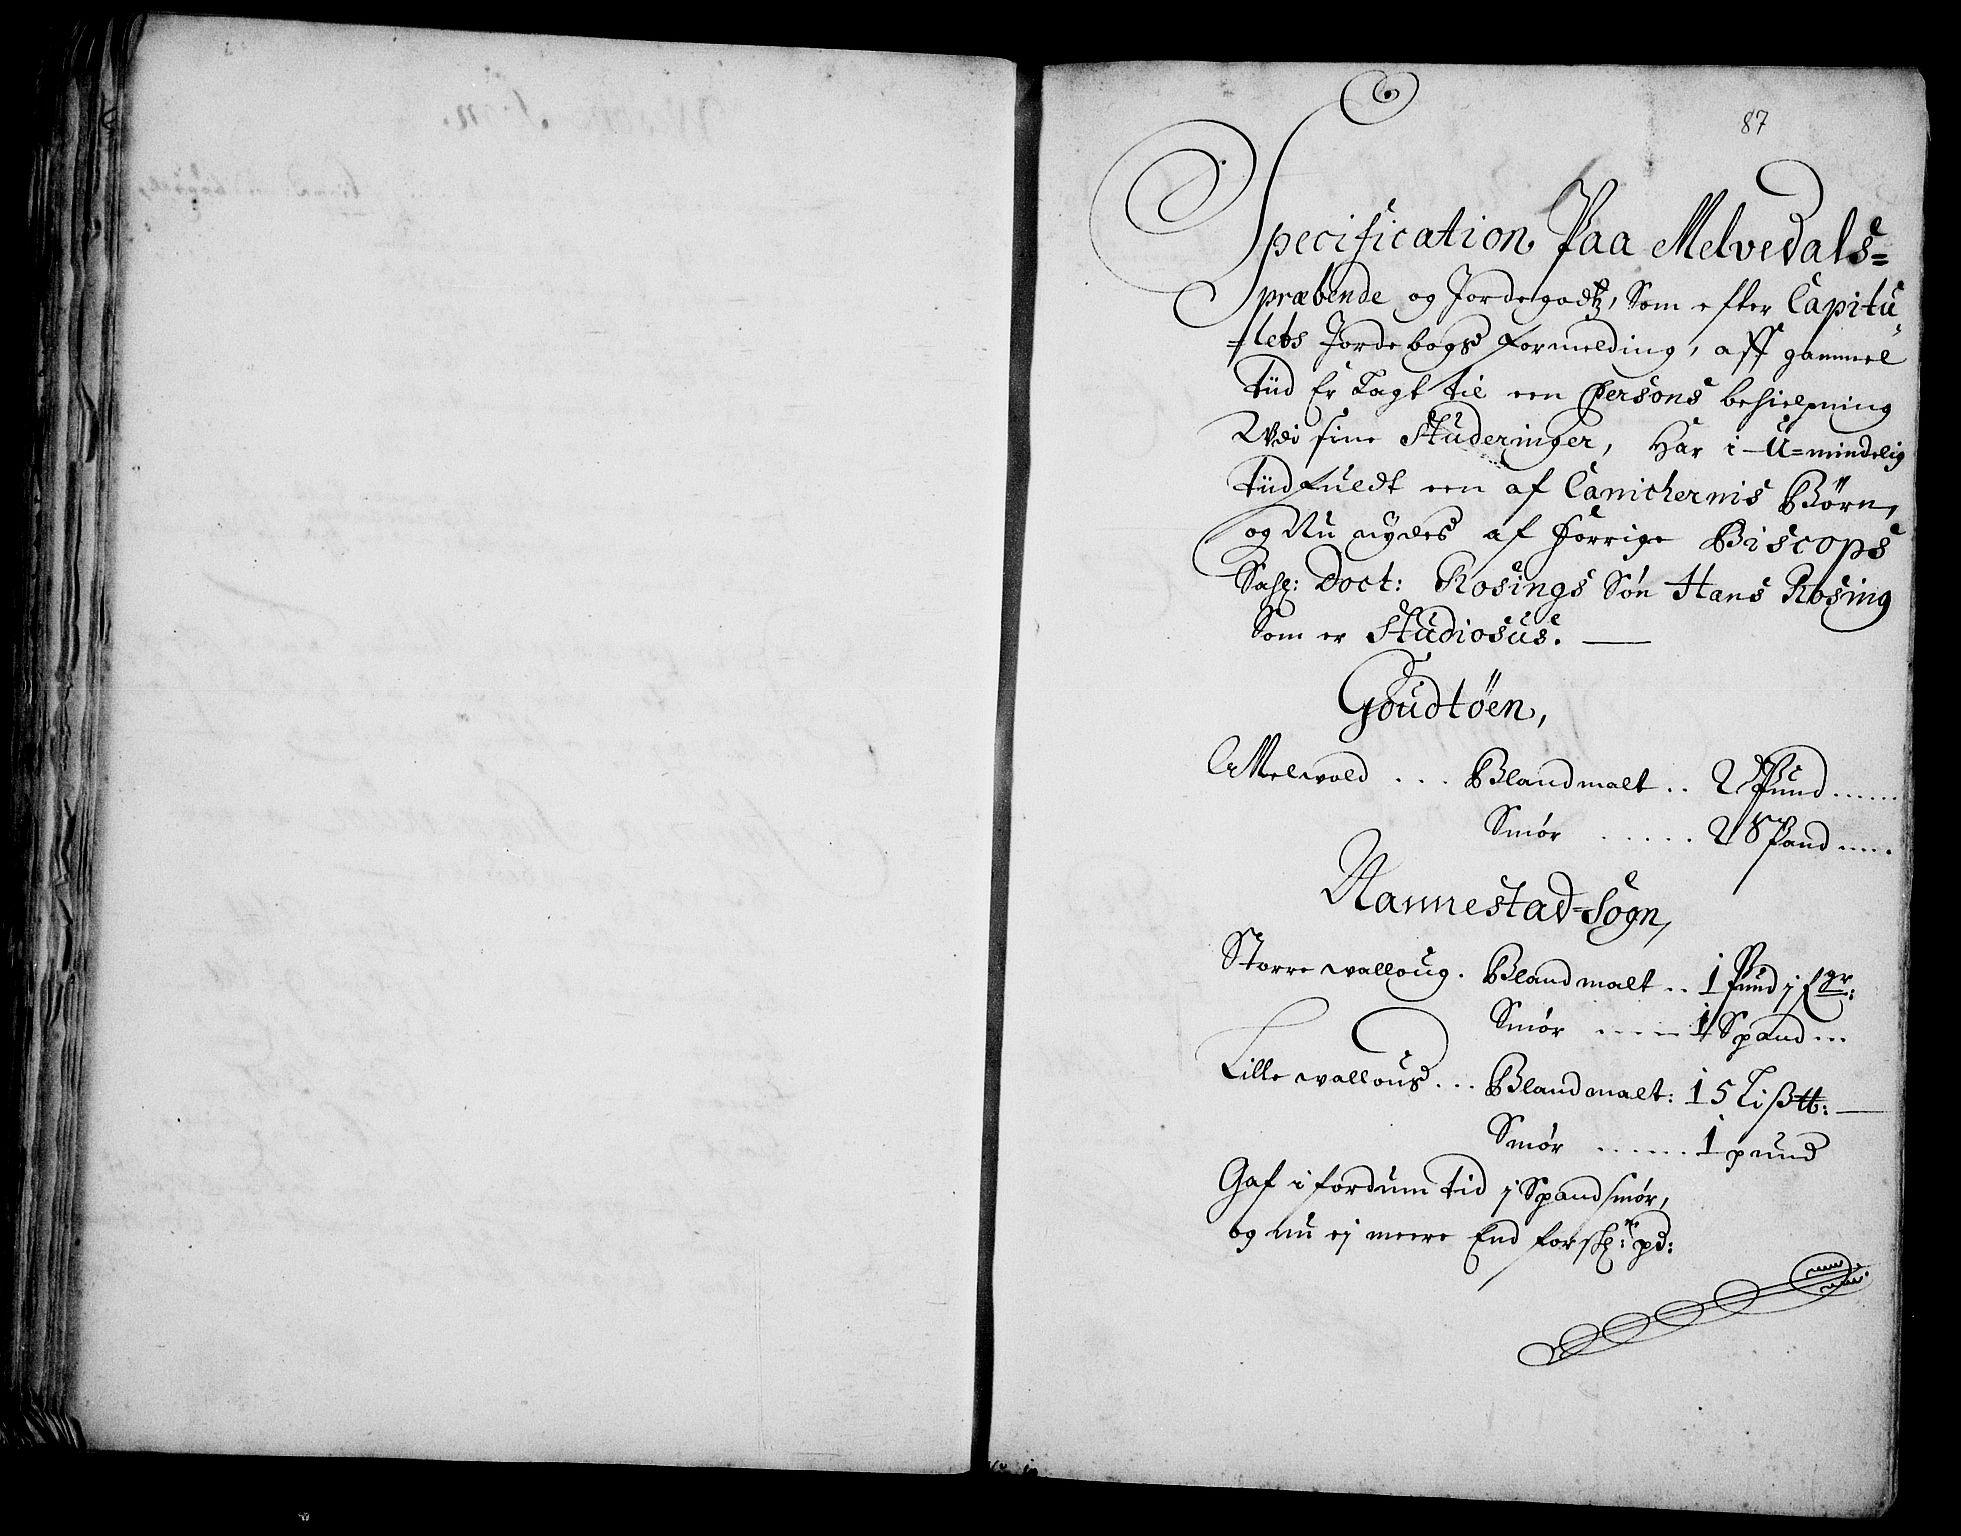 87
Specification Paa Melvedals=
præbende og Jordegodtz, Som efter Capitu„
=lets Jordebogs Formelding, aff gammel
tiid Er Lagt til een Persons behielpning
Udi sine Studeringer, Har i U=mindelig
tiid fuldt een af Canichernis Børn,
og Nu nydes af Forrige Biscops
Sahl: Doct: Rosings Søn Hans Rosing
Som er Studiosus.
Goudtøen,
Melwold ... Blandmalt .. 2 Pund ......
Smør ...... 2 Spand .....
Nannestad=Sogn,
Storre walloug. Blandmalt .. 1 Pund j
Smør ..... 1 Spand ...
Lille walloug ... Blandmalt: 1 5 Lißtt:
Smør ...... 1 pund
Gaf i fordum tid j Spand smør,
og nu ej meere End forschr: pd: